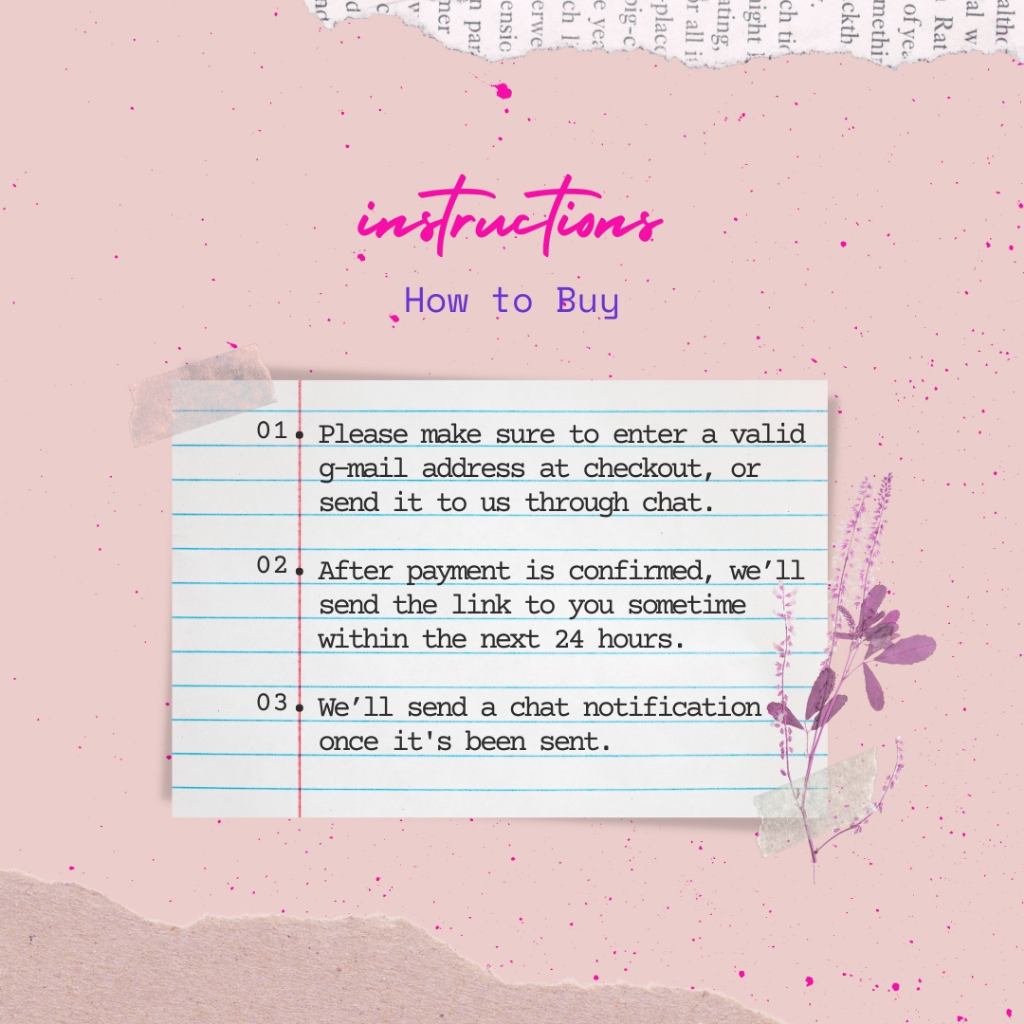 instructions
How to Buy
01. Please make sure to enter a valid
g-mail address at checkout, or
send it to us through chat.
02. After payment is confirmed, we’ll
send the link to you sometime
within the next 24 hours.
03. We’ll send a chat notification
once it's been sent.